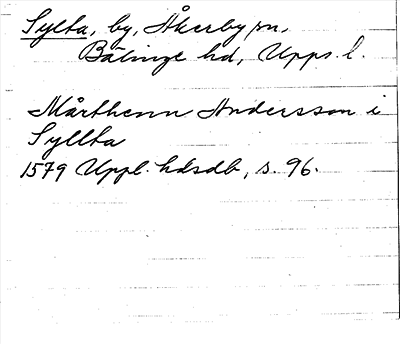 Sylta, by, Åkerby sn,
Bälinge hd, Upps. l.
Mårthenn Andersson i
Syllta
1579 Uppl. hdsdb, s. 96.